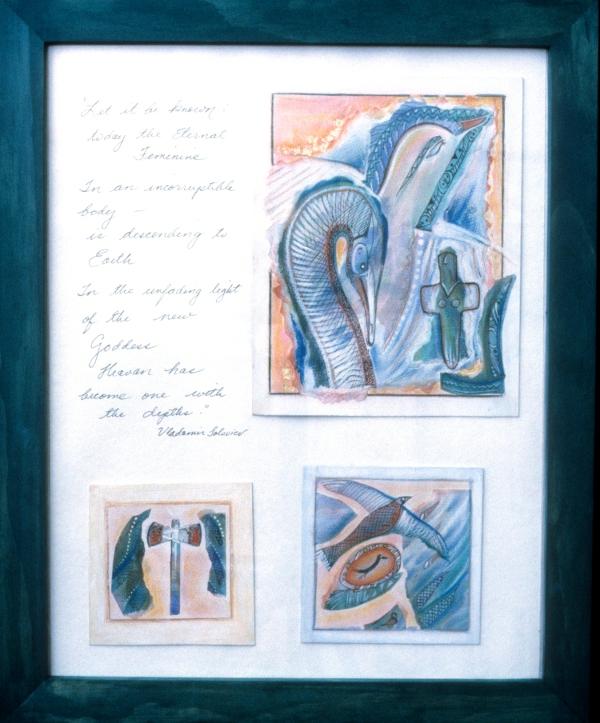 "Let it be known:
today the Eternal
Feminine
In an incorruptible
body –
is descending to
Earth
In the unfading light
of the new
Goddess
Heaven has
become one with
the depths."
Vladamir Soloviev